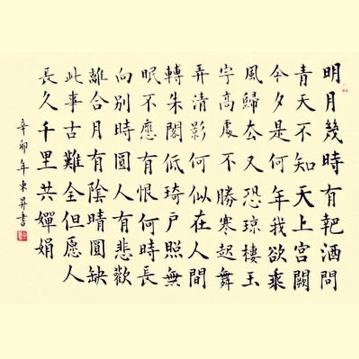 明月幾時有把酒問
青天不知天上宮闕
今夕是何年我欲乘
風歸去又恐瓊樓玉
宇高處不勝寒起舞
弄清影何似在人間
轉朱閣低琦戶照無
眠不應有恨何時長
向別時圓人有悲歡
離合月有陰晴圓缺
此事古難全但愿人
長久千里共嬋娟
辛卯年東昇書